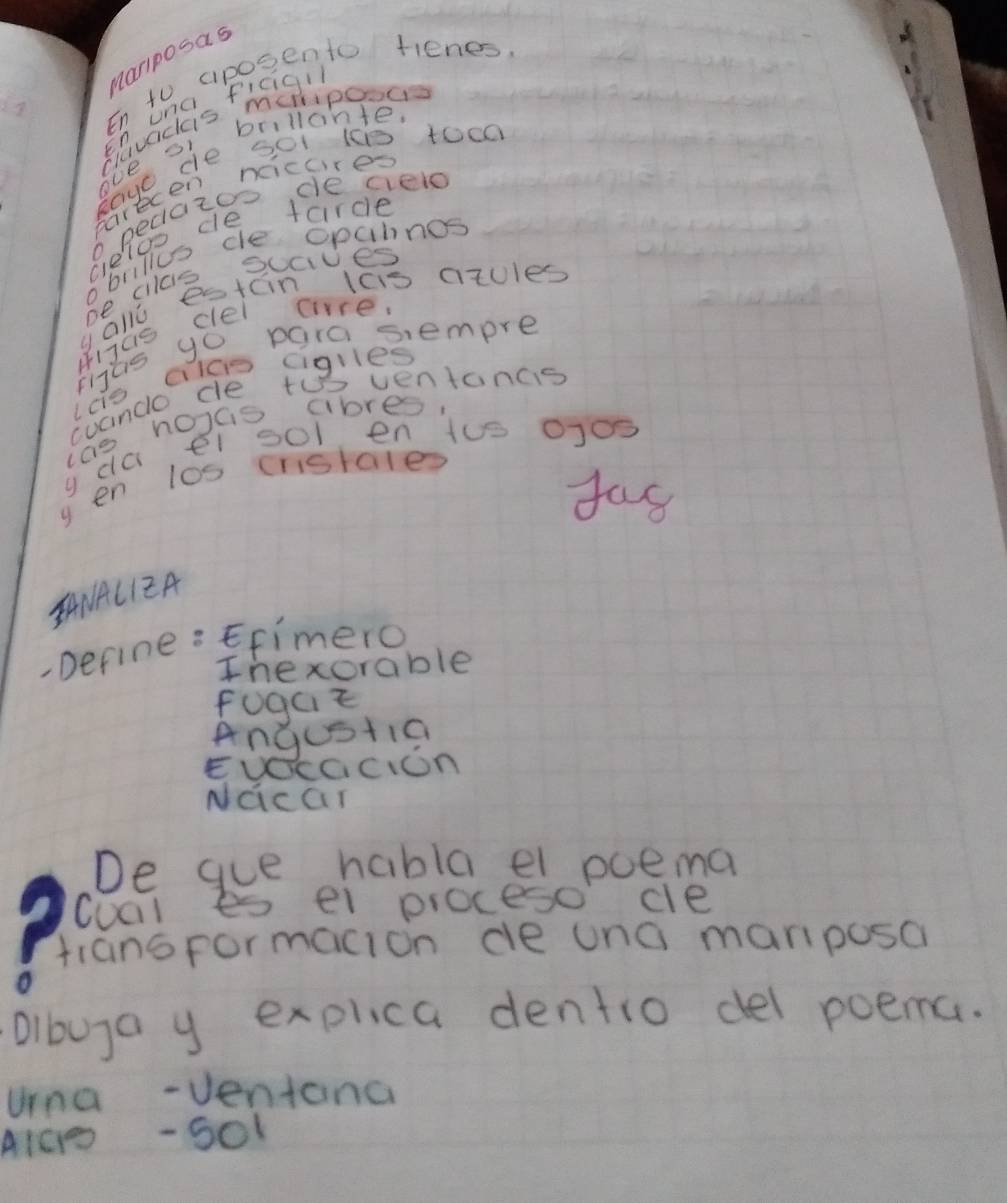 Mariposas
En tu aposento tienes.
En una fragil
clavadas mariposas
Que si brillante.
Rayo de sol las toca
Parecen nácares
o pedazos de cielo
cielos de tarde
o brillos de opalinos
De alas suaves
y allí están las azules
Hijas del aire.
Fijas yo para siempre
Las alas agiles
cuando de tus ventanas
las hojas abres,
y da el sol en tus ojos
y en los cristales
Jas
ANALIZA
-Define: Efímero
Inexorable
Fugaz
Angustia
Evocación
Nácar
De que habla el poema
? Cual es el proceso de
transformacion de una mariposa
.Dibuja y explica dentro del poema.
Urna -Ventana
Alas -Sol